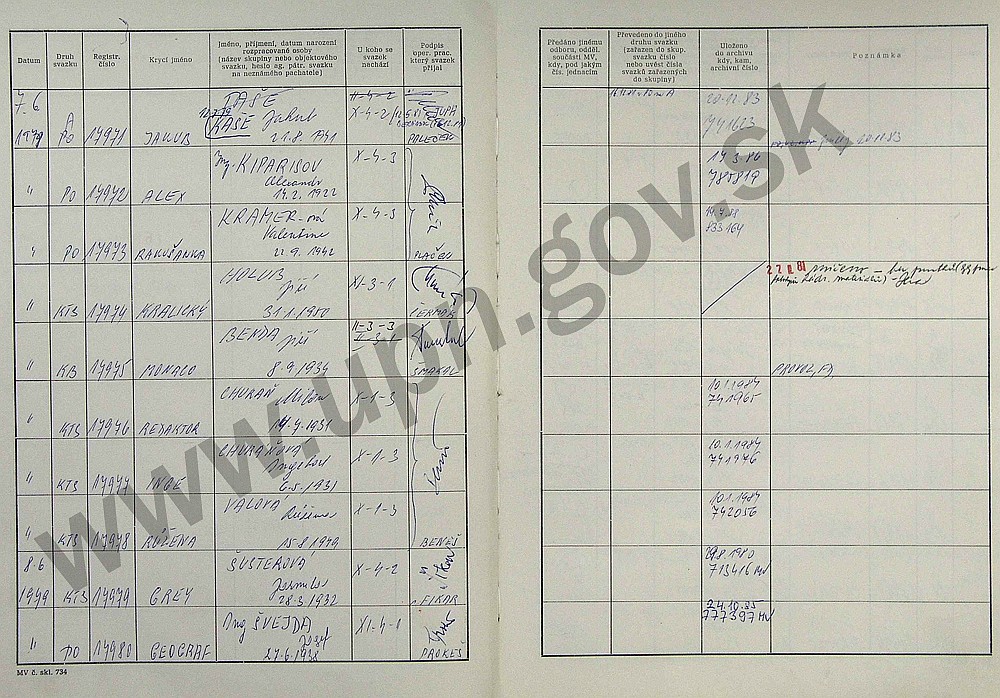 Datum
Druh svazku
Registr. číslo
Krycí jméno
Jméno, příjmení, datum narození
rozpracované osoby
(název skupiny nebo objektového
svazku, heslo ag. pátr. svazku
na neznámého pachatele)
U koho se
svazek
nachází
Podpis
oper. prac.
který svazek
přijal
7.6
1979
A
PO 17971 JAKUB
TAŠE
KAŠE Jakub
21.8.1941
X-4-2
PALEČEK
" PO 17972 ALEX
Ing. KIPARISOV
Alexandr
14.2.1922
X-4-3
" PO 17973 RAKUŠANKA
KRAMER-ová
Valentine
22.9.1942
X-4-3
PLAČEK
" KTS 17974 KRALICKÝ
HOLUB
Jiří
31.1.1950
XI-3-1
ČERMÁK
" KB 17975 MONACO
BENDA
Jiří
8.9.1934
II-3-3
SMAKAL
" KTS 17976 REDAKTOR
CHURAŇ
Milan
X-1-3
" KTS 17977 INGE
CHURAŇOVÁ
6.5.1931
X-1-3
" KTS 17978 RŮŽENA
VALOVÁ
Růžena
15.8.1929
X-1-3
BENEŠ
8.6
1979 KTS 17979 GREY
ŠUSTEROVA
Jarmila
28.3.1932
X-4-2
FIKAR
" PO 17980 GEOGRAF
Ing ŠVEJDA
Josef
27.6.1938
XI-4-1
PROKEŠ
MV č. skl. 734
Předáno jinému
odboru, odděl.
součásti MV,
kdy, pod jakým
čís. jednacím
Převedeno do jiného
druhu svazku
(zařazen do skup.
svazku číslo
nebo uvést čísla
svazků zařazených
do skupiny)
Uloženo
do archivu
kdy, kam,
archivní číslo
Poznámka
20.12.83
741623
20.12.83
17.3.86
785819
19.7.88
833164
22.II.81 zničeno
10.1.1984
741965
10.1.1984
741976
10.1.1984
742056
29.8.1980
713416 MV
24.10.85
777397 MV
www.upn.gov.sk